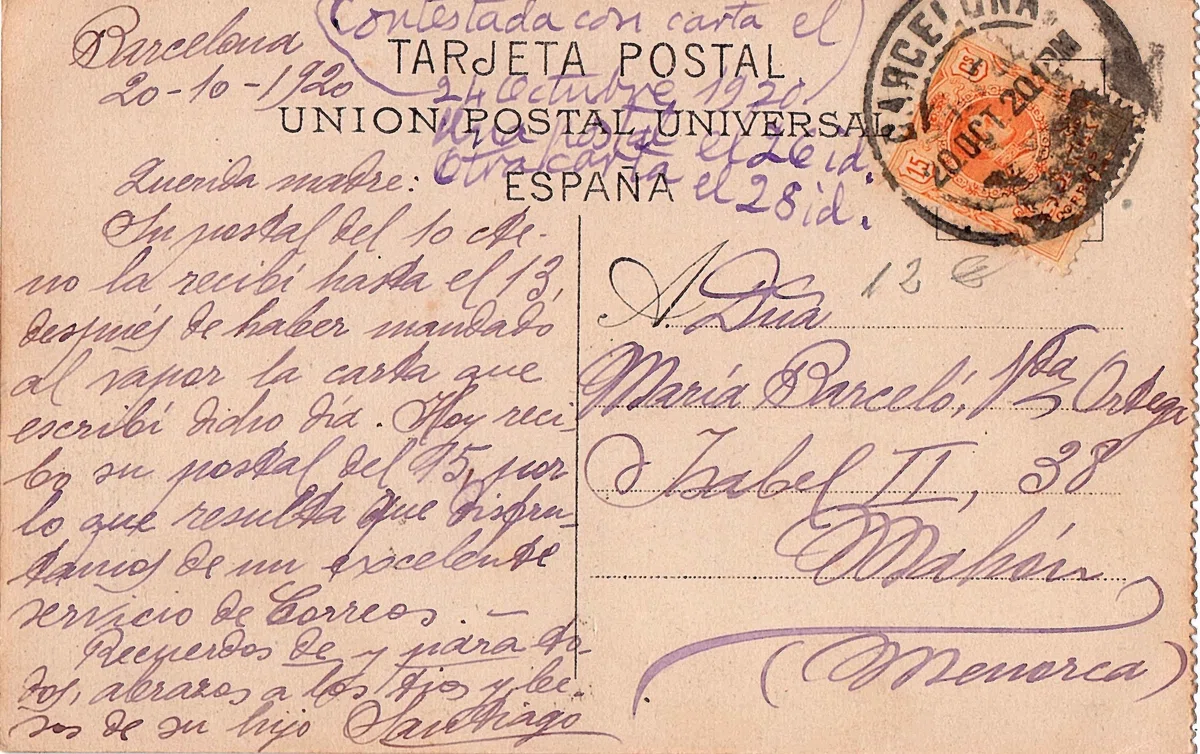 Barcelona
20-10-1920
Contestada con carta el
24 Octubre 1920.
Una postal el 26 id.
Otra carta el 28 id.
TARJETA POSTAL
UNION POSTAL UNIVERSAL
ESPAÑA
BARCELONA
20.OCT.20.1
15 CS
CORREOS
12 €
Querida madre:
Su postal del 10 cte.
no la recibí hasta el 13,
después de haber mandado
al vapor la carta que
escribí dicho día. Hoy reci-
bo su postal del 15, por
lo que resulta que disfru-
tamos de un excelente
servicio de Correos. —
Recuerdos de y para to-
dos, abrazos a los tios y be-
sos de su hijo Santiago
A. Dña
María Barceló, Vda Ortega
Isabel II, 38
Mahón
(Menorca)